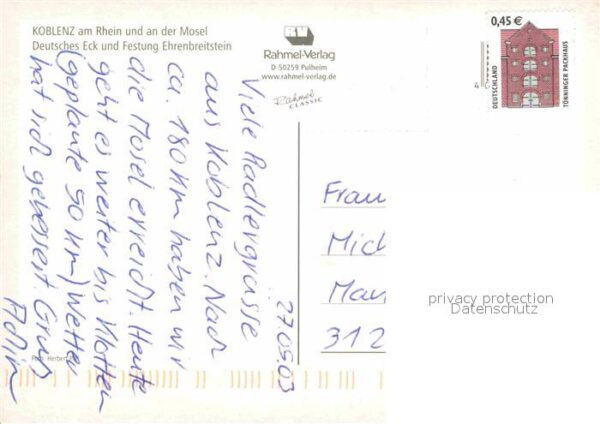 KOBLENZ am Rhein und an der Mosel
Deutsches Eck und Festung Ehrenbreitstein
RV
Rahmel-Verlag
D-50259 Pulheim
www.rahmel-verlag.de
Rahmel
CLASSIC
0,45 €
DEUTSCHLAND
TÖNNINGER PACKHAUS
27.05.03
Viele Radlergrüsse
aus Koblenz. Nach
ca. 180 Km haben wir
die Mosel erreicht. Heute
geht es weiter bis Klotten
(geplante 50 Km) Wetter
hat sich gebessert. Gruß
Frau
Mich
Man
312
privacy protection
Datenschutz
Foto: Herbert